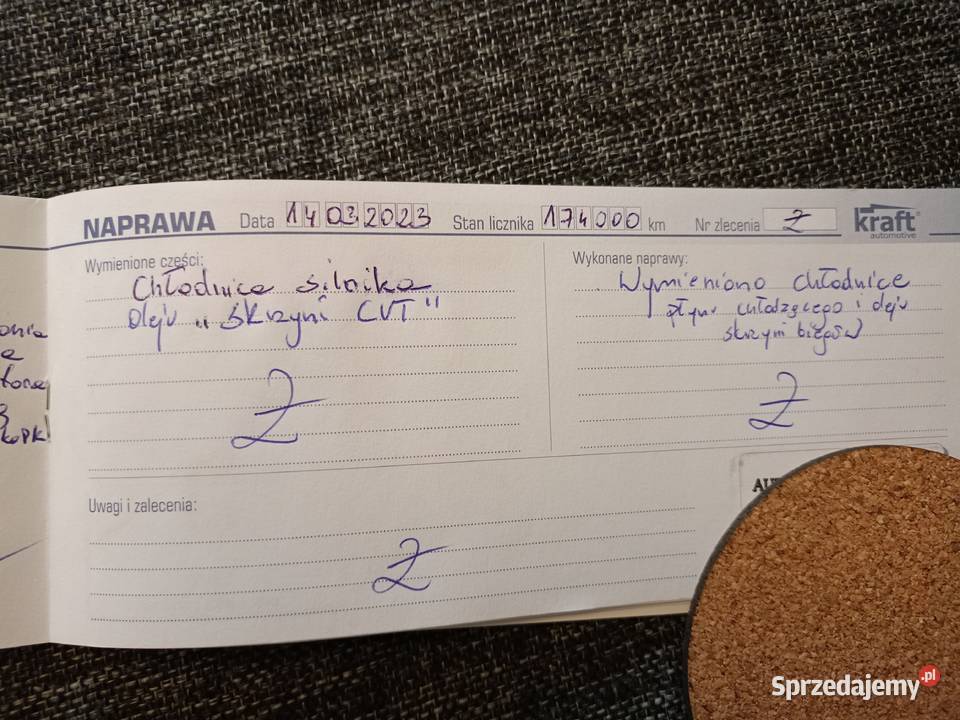 NAPRAWA Data 14 03 2023 Stan licznika 174000 km Nr zlecenia Z kraft automotive
Wymienione części:
Chłodnica silnika
oleju „skrzyni CVT"
Z
Wykonane naprawy:
Wymieniono chłodnice
płynu chłodzącego i oleju
skrzyni biegów
Z
Uwagi i zalecenia:
Z
Sprzedajemy.pl